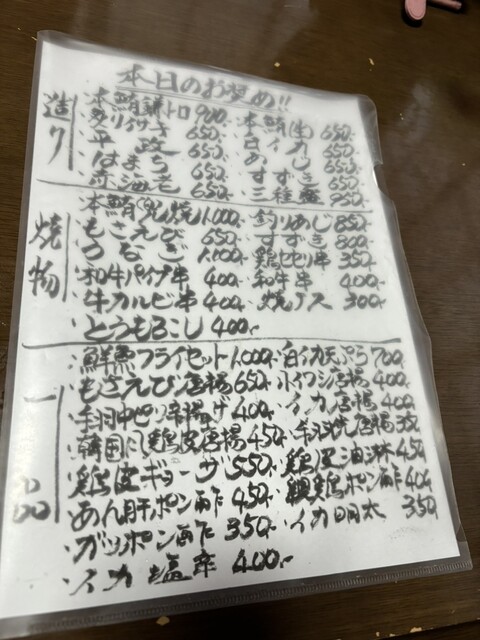 本日のお奨め!!
造り
・本鮪鎌トロ 900.- ・本鮪(生) 650.-
・イサキ 650.- ・白イカ 650.-
・平政 650.- ・あじ 650.-
・はまち 650.- ・すずき 650.-
・赤海老 650.- ・三種盛 950.-
焼物
・本鮪(兜)焼 1,000.- ・釣りあじ 850.-
・もさえび 650.- ・すずき 800.-
・うなぎ 1,000.- ・鶏セセリ串 350.-
・和牛パイプ串 400.- ・和牛串 400.-
・牛カルビ串 400.- ・焼ナス 300.-
・とうもろこし 400.-
一品
・鮮魚フライセット 1,000.- ・白イカ天ぷら 700.-
・もさえび唐揚 650.- ・小イワシ唐揚 400.-
・手羽中ピリ辛揚げ 400.- ・イカ唐揚 400.-
・韓国風鶏皮唐揚 450.- 唐揚 350.-
・鶏皮ギョーザ 550.- ・鶏皮油淋 450.-
・あん肝ポン酢 450.- ・親鶏ポン酢 400.-
・ガッツポン酢 350.- ・イカ明太 350.-
・イカ塩辛 400.-